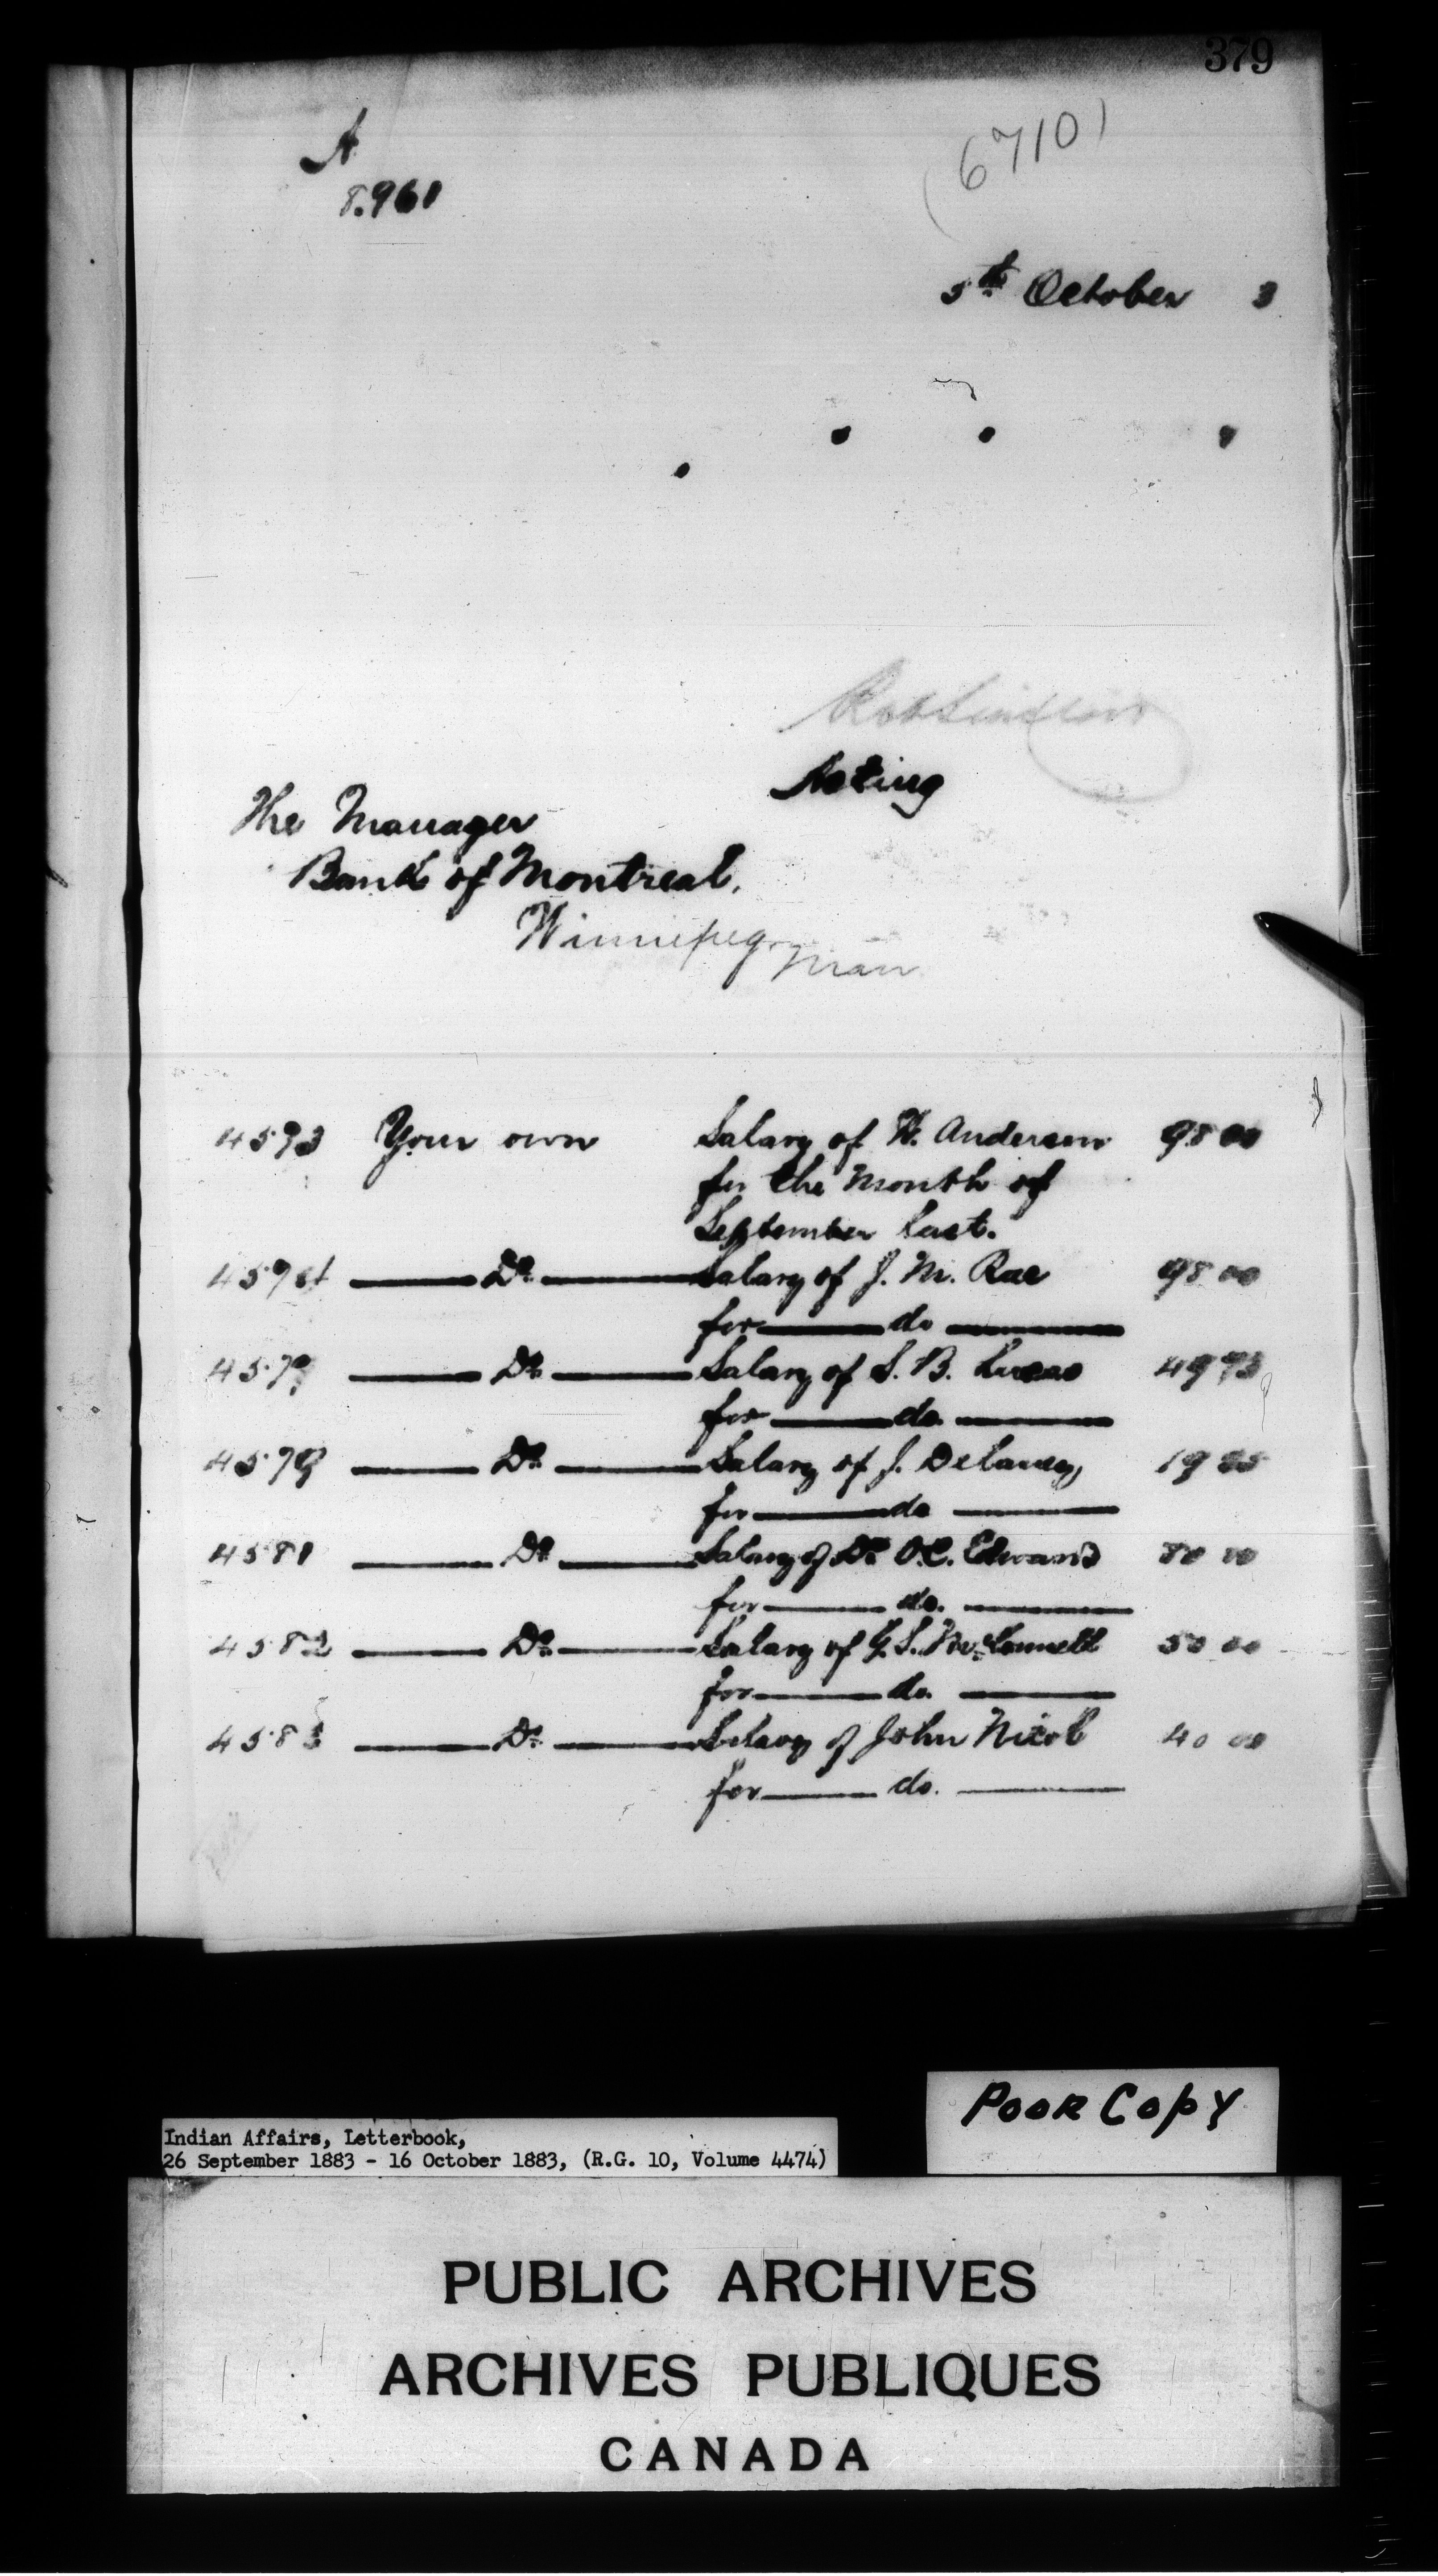 379
A
8.961
(6710)
5th October 3
Rob Sinclair
Acting
The Manager
Bank of Montreal.
Winnipeg. Man
4573 Your own Salary of W. Anderson 98 00
for the Month of
September last.
4574 — Do — Salary of J. M. Rae 98 00
for — do —
— Do — Salary of S. B. Lucas 49 73
for — do. —
4579 — Do — Salary of J. Delaney
for — do —
4581 — Do — Salary of Dr. O.C. Edwards 80 00
for — do. —
4582 — Do — Salary of G. S. McConnell 50 00
for — do. —
4583 — Do — Salary of John Nicol 40 00
for — do. —
Poor Copy
Indian Affairs, Letterbook,
26 September 1883 - 16 October 1883, (R.G. 10, Volume 4474)
PUBLIC ARCHIVES
ARCHIVES PUBLIQUES
CANADA